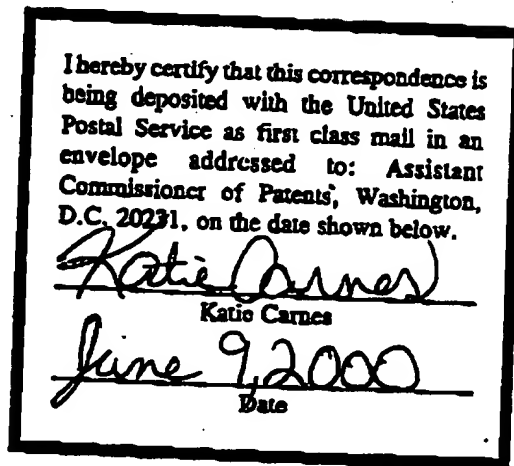 I hereby certify that this correspondence is
being deposited with the United States
Postal Service as first class mail in an
envelope addressed to: Assistant
Commissioner of Patents, Washington,
D.C. 20231, on the date shown below.
Katie Carnes
Katie Carnes
June 9, 2000
Date